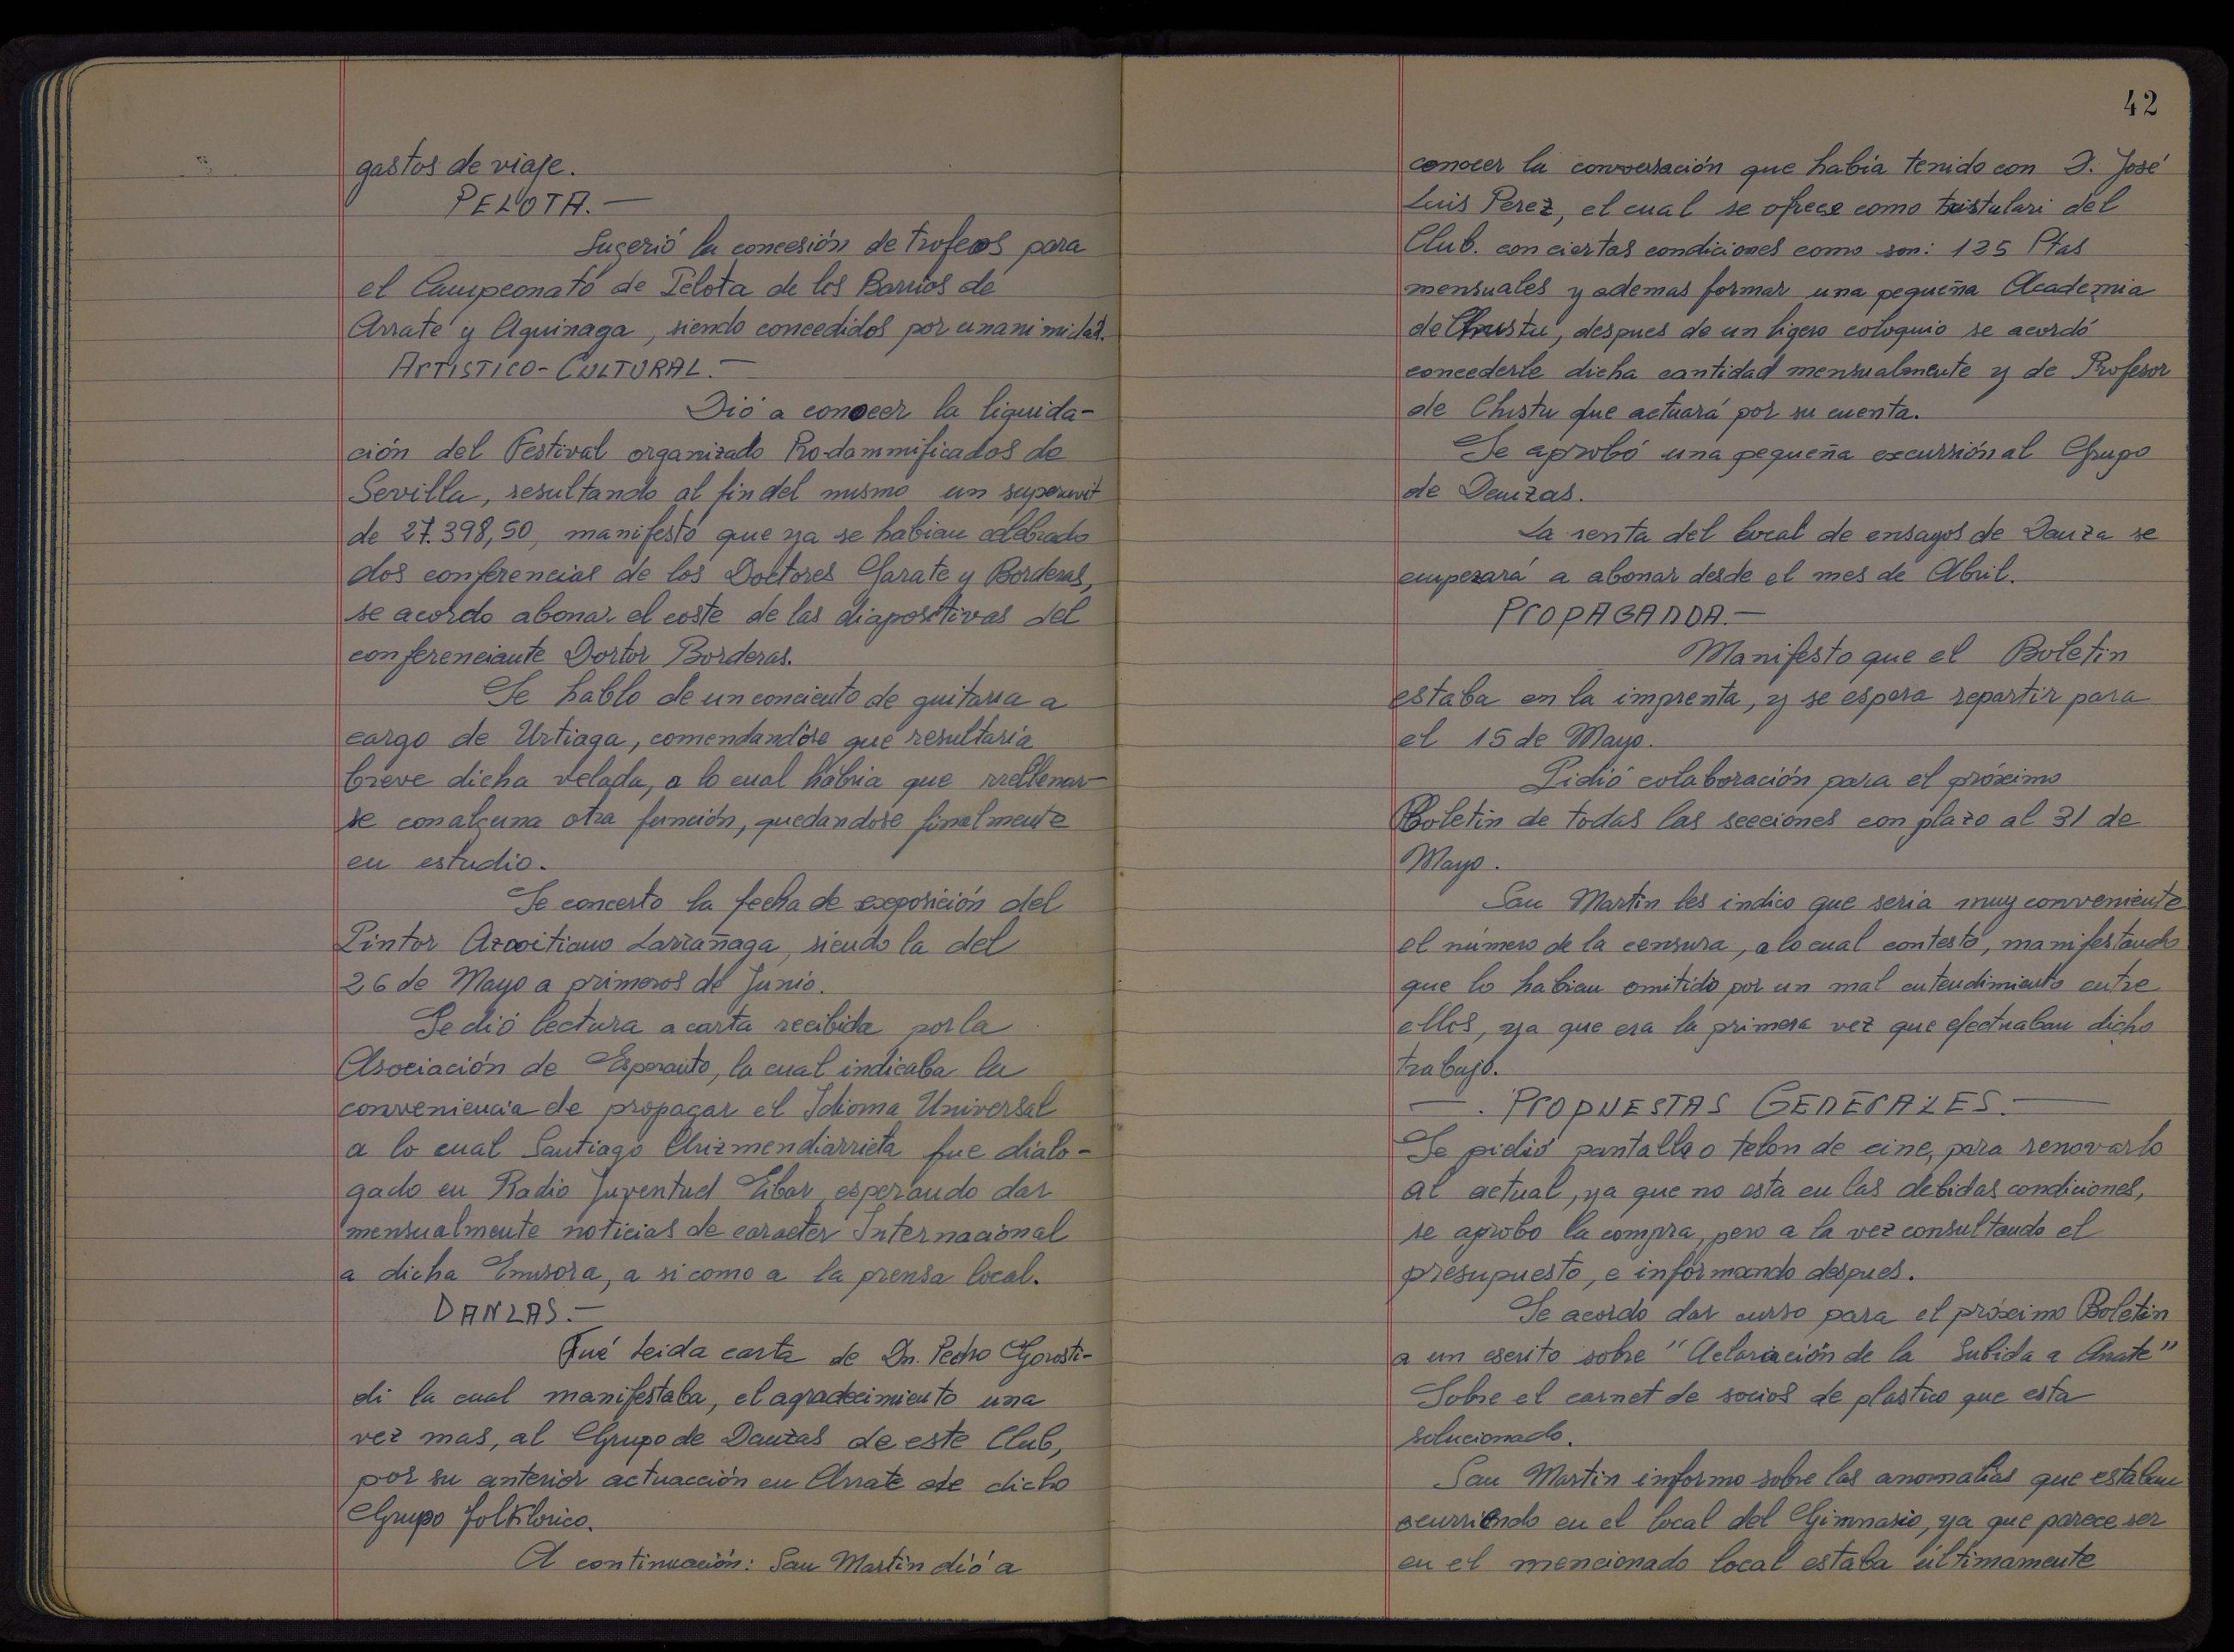 gastos de viaje.
PELOTA.—
Sugerió la concesión de trofeos para
el Campeonato de Pelota de los Barrios de
Arrate y Aguinaga, siendo concedidos por unanimidad.
ARTISTICO-CULTURAL.—
Dió a conocer la liquida-
ción del Festival organizado Pro-dammificados de
Sevilla, resultando al fin del mismo un superavit
de 27.398,50, manifestó que ya se habian celebrado
dos conferencias de los Doctores Garate y Borderas,
se acordo abonar el coste de las diapositivas del
conferenciante Dortor Borderas.
Se hablo de un concierto de guitarra a
cargo de Urtiaga, comendandóse que resultaria
breve dicha velada, a lo cual habria que rrellenar-
se con alguna otra función, quedandose finalmente
en estudio.
Se concerto la fecha de exposición del
Pintor Azcoitiano Larrañaga, siendo la del
26 de Mayo a primeros de Junio.
Se dió lectura a carta recibida por la
Asociación de Esperanto, la cual indicaba la
conveniencia de propagar el Idioma Universal
a lo cual Santiago Arizmendiarrieta fue dialo-
gado en Radio Juventud Eibar, esperando dar
mensualmente noticias de caracter Internacional
a dicha Emisora, a si como a la prensa local.
DANZAS.—
Fué leida carta de Dn. Pedro Gorosti-
di la cual manifestaba, el agradecimiento una
vez mas, al Grupo de Danzas de este Club,
por su anterior actuacción en Arrate de dicho
Grupo folklorico.
A continuación: San Martin dió a
42
conocer la conversación que había tenido con D. José
Luis Perez, el cual se ofrece como txistulari del
Club. con ciertas condiciones como son: 125 Ptas
mensuales y ademas formar una pequeña Academia
de Chustu, despues de un ligero coloquio se acordó
concederle dicha cantidad mensualmente y de Profesor
de Chustu que actuará por su cuenta.
Se aprobó una pequeña excursión al Grupo
de Danzas.
La renta del local de ensayos de Danza se
empezará a abonar desde el mes de Abril.
PROPAGANDA.—
Manifesto que el Boletin
estaba en la imprenta, y se espera repartir para
el 15 de Mayo.
Pidió colaboración para el próximo
Boletin de todas las secciones con plazo al 31 de
Mayo.
San Martin les indico que seria muy conveniente
el número de la censura, a lo cual contestó, manifestando
que lo habian omitido por un mal entendimiento entre
ellos, ya que era la primera vez que efectuaban dicho
trabajo.
—. PROPUESTAS GENERALES.—
Se pidió pantalla o telon de cine, para renovarlo
al actual, ya que no esta en las debidas condiciones,
se aprobo la compra, pero a la vez consultando el
presupuesto, e informando despues.
Se acordó dar curso para el próximo Boletin
a un escrito sobre "Aclaración de la Subida a Arrate"
Sobre el carnet de socios de plastico que esta
solucionado.
San Martin informo sobre las anomalias que estaban
ocurriendo en el local del Gimnasio, ya que parece ser
en el mencionado local estaba últimamente